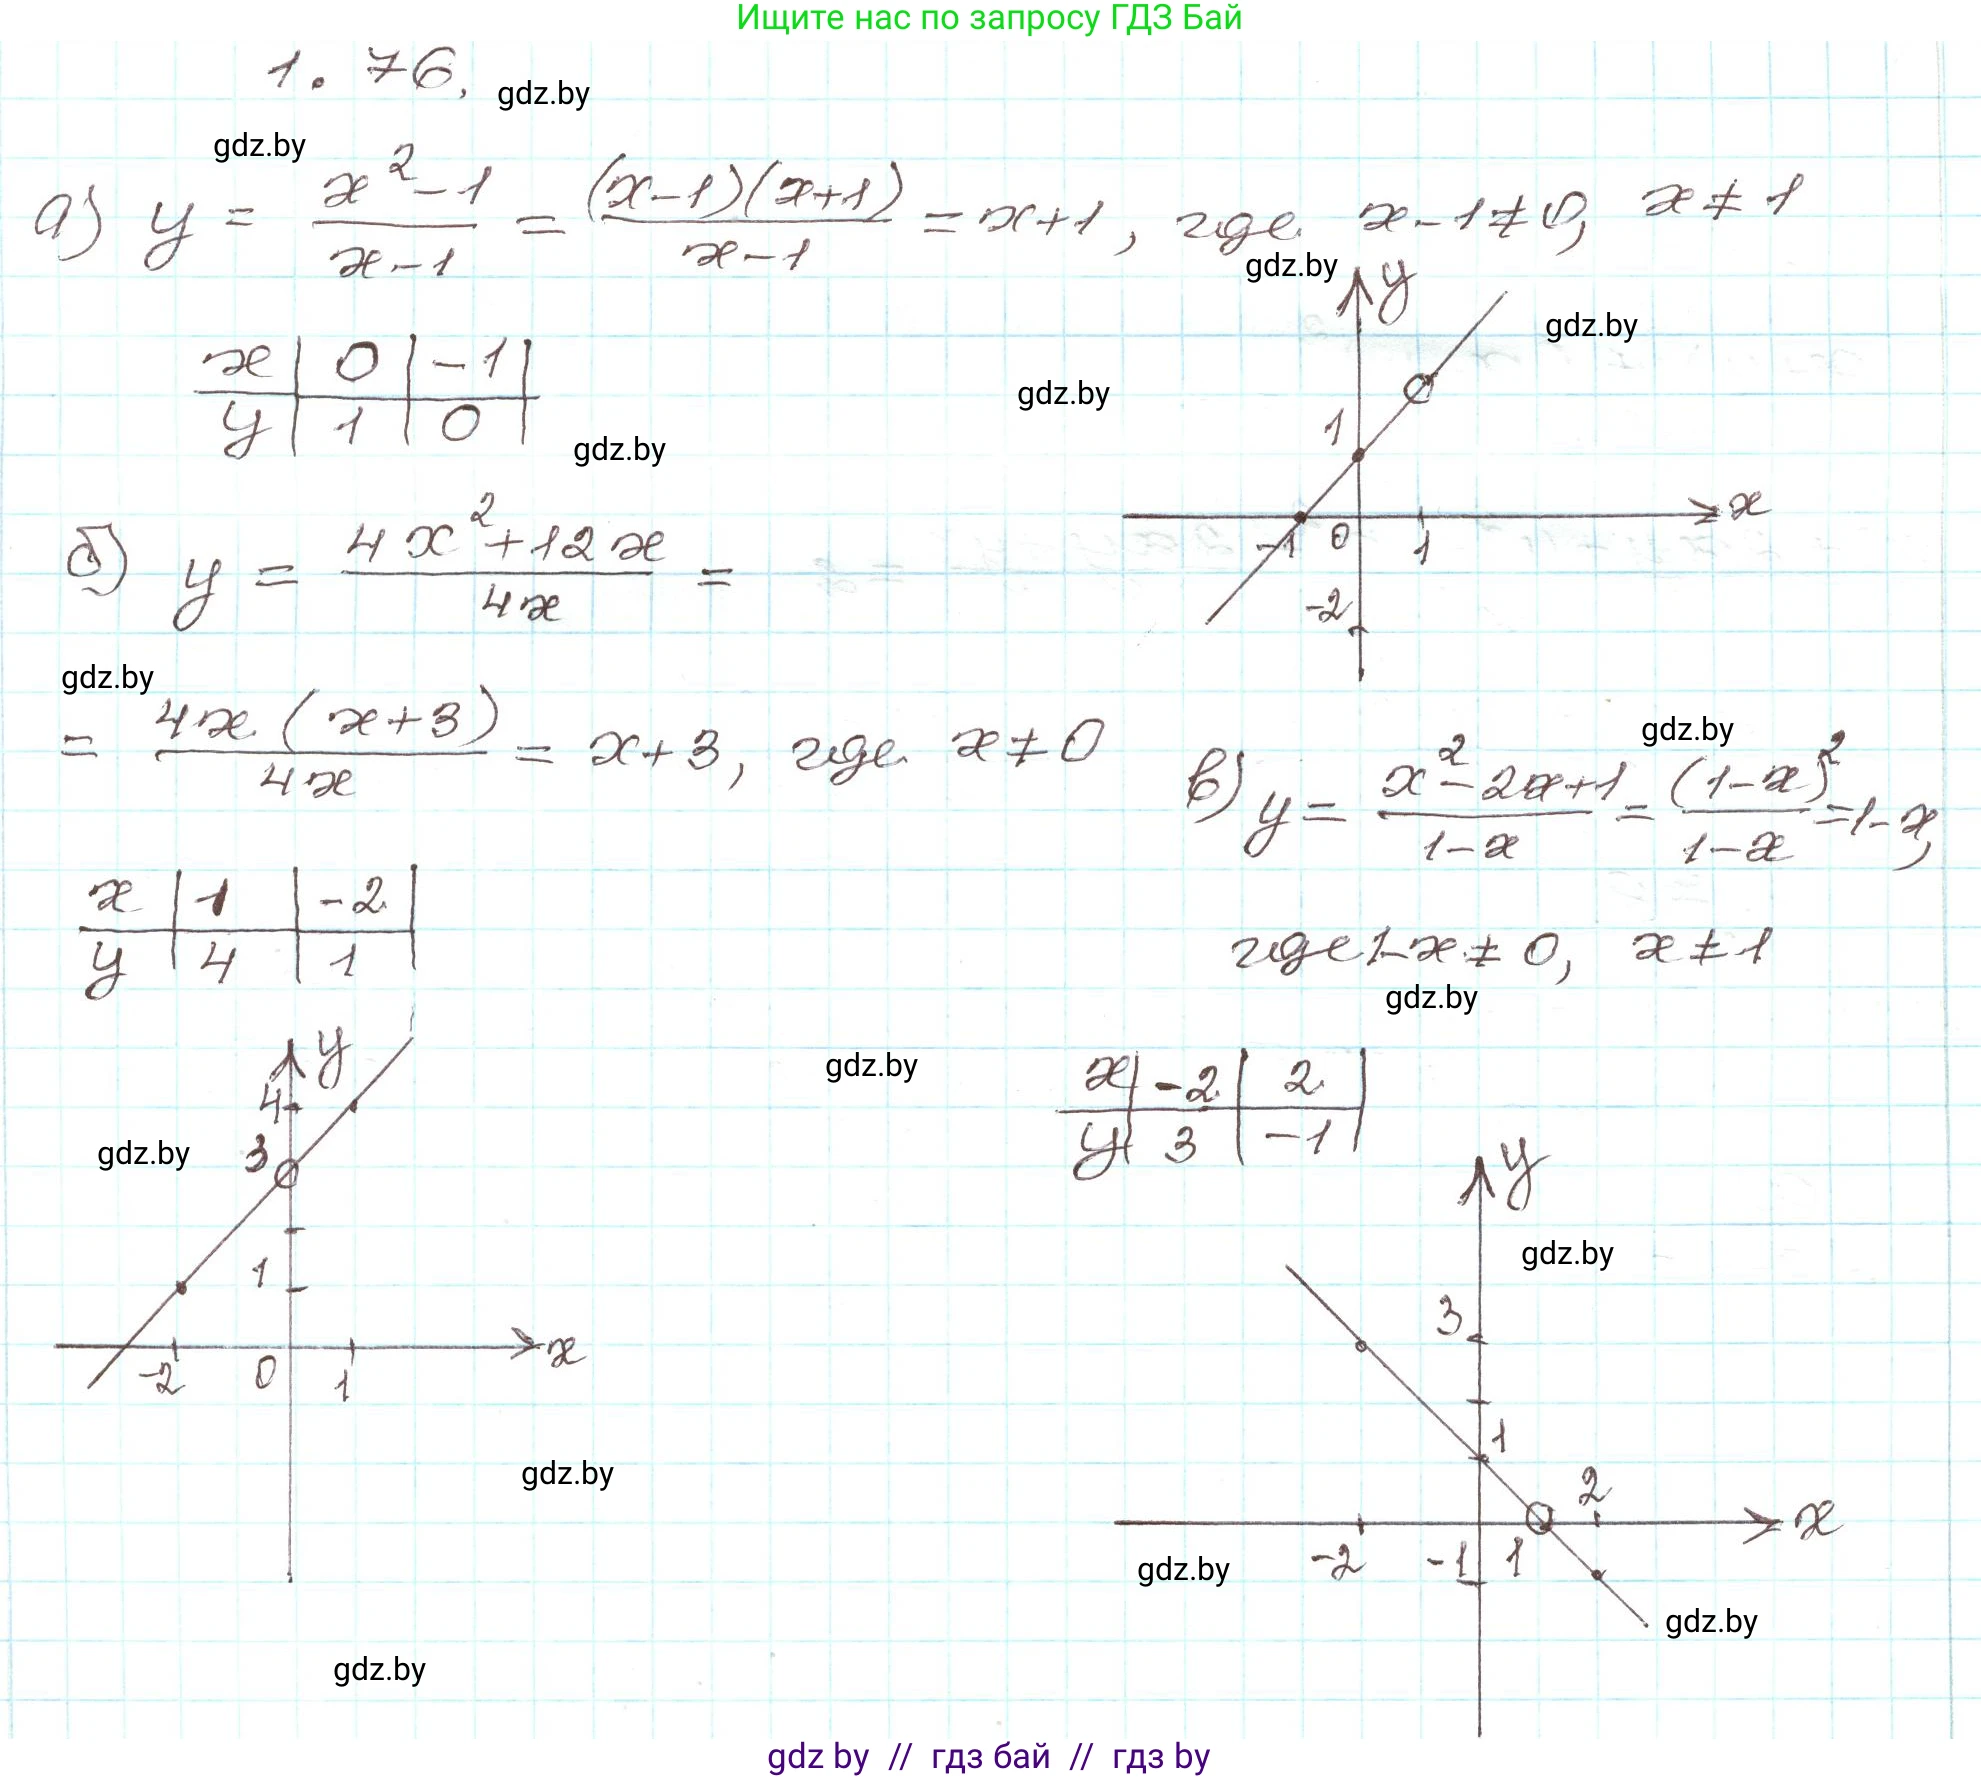 Ищите нас по запросу ГДЗ Бай
1. 76.
gdz.by
gdz.by
а) y = \frac{x^2-1}{x-1} = \frac{(x-1)(x+1)}{x-1} = x+1, где x-1≠0, x≠1
gdz.by
y
gdz.by
x | 0 | -1
y | 1 | 0
gdz.by
gdz.by
1
x
-1 0 1
-2
б) y = \frac{4x^2+12x}{4x} =
gdz.by
= \frac{4x(x+3)}{4x} = x+3, где x≠0
gdz.by
в) y = \frac{x^2-2x+1}{1-x} = \frac{(1-x)^2}{1-x} = 1-x,
где 1-x≠0, x≠1
gdz.by
x | 1 | -2
y | 4 | 1
y
4
gdz.by
3
1
x
-2 0 1
gdz.by
gdz.by
x | -2 | 2
y | 3 | -1
y
gdz.by
3
1
2
x
gdz.by
-2 -1 1
gdz.by
gdz.by
gdz by // гдз бай // гдз by